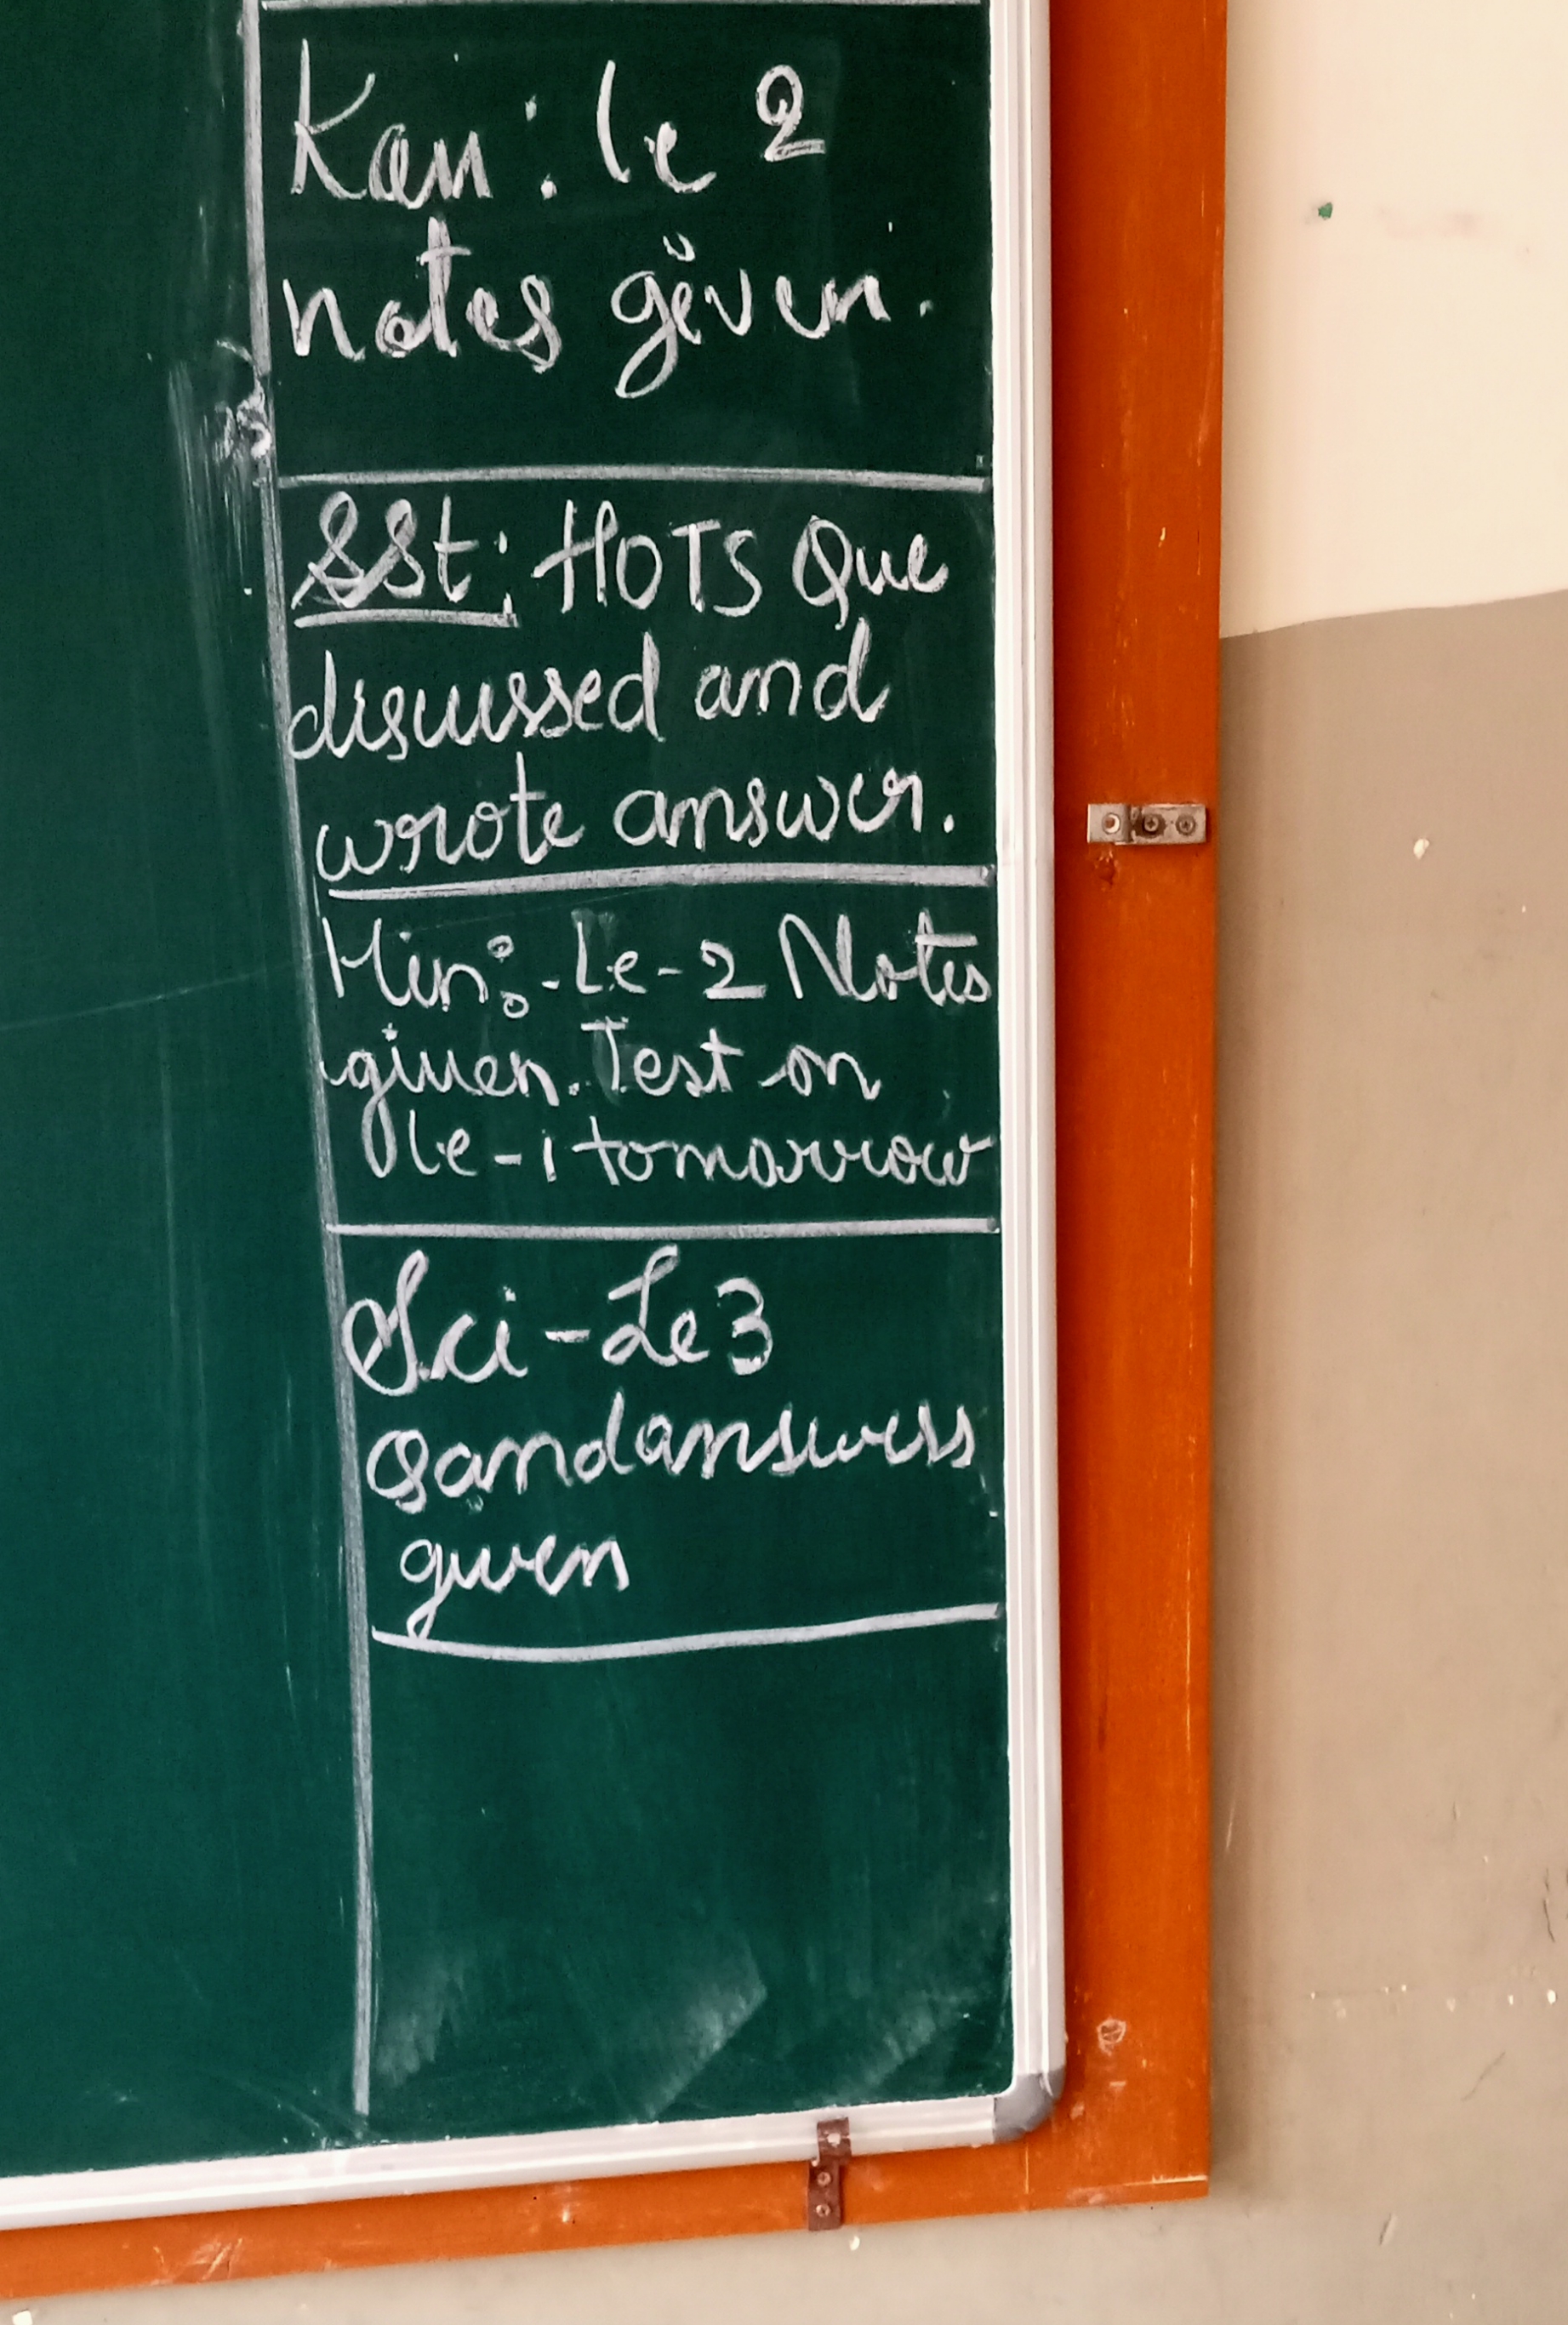 Kan: le 2
notes given.
SSt: HOTS Que
discussed and
wrote answer.
Hin:-Le-2 Notes
given. Test on
le-1 tomorrow
Sci-Le 3
Q and answers
given